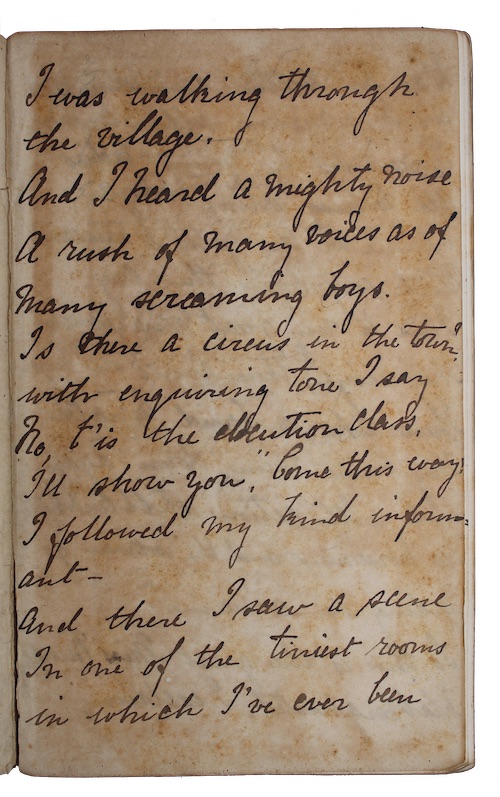 I was walking through
the village.
And I heard a mighty noise
A rush of many voices as of
many screaming boys.
Is there a circus in the town",
with enquiring tone I say
No, t'is the elocution class,
I'll show you," Come this way.
I followed my kind inform-
ant-
And there I saw a scene
In one of the tiniest rooms
in which I've ever been